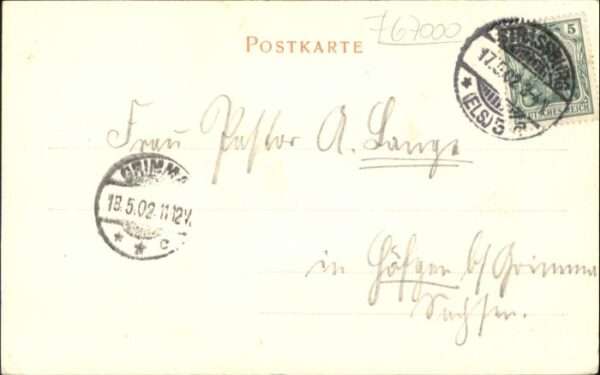 767000
POSTKARTE
5
STRASSBURG
17.5.02
(ELS.) 5
DEUTSCHES REICH
Frau Pastor A. Lange
GRIMMA
18.5.02.11-12V.
* * c
in Höfgen b/ Grimma
Sachsen.